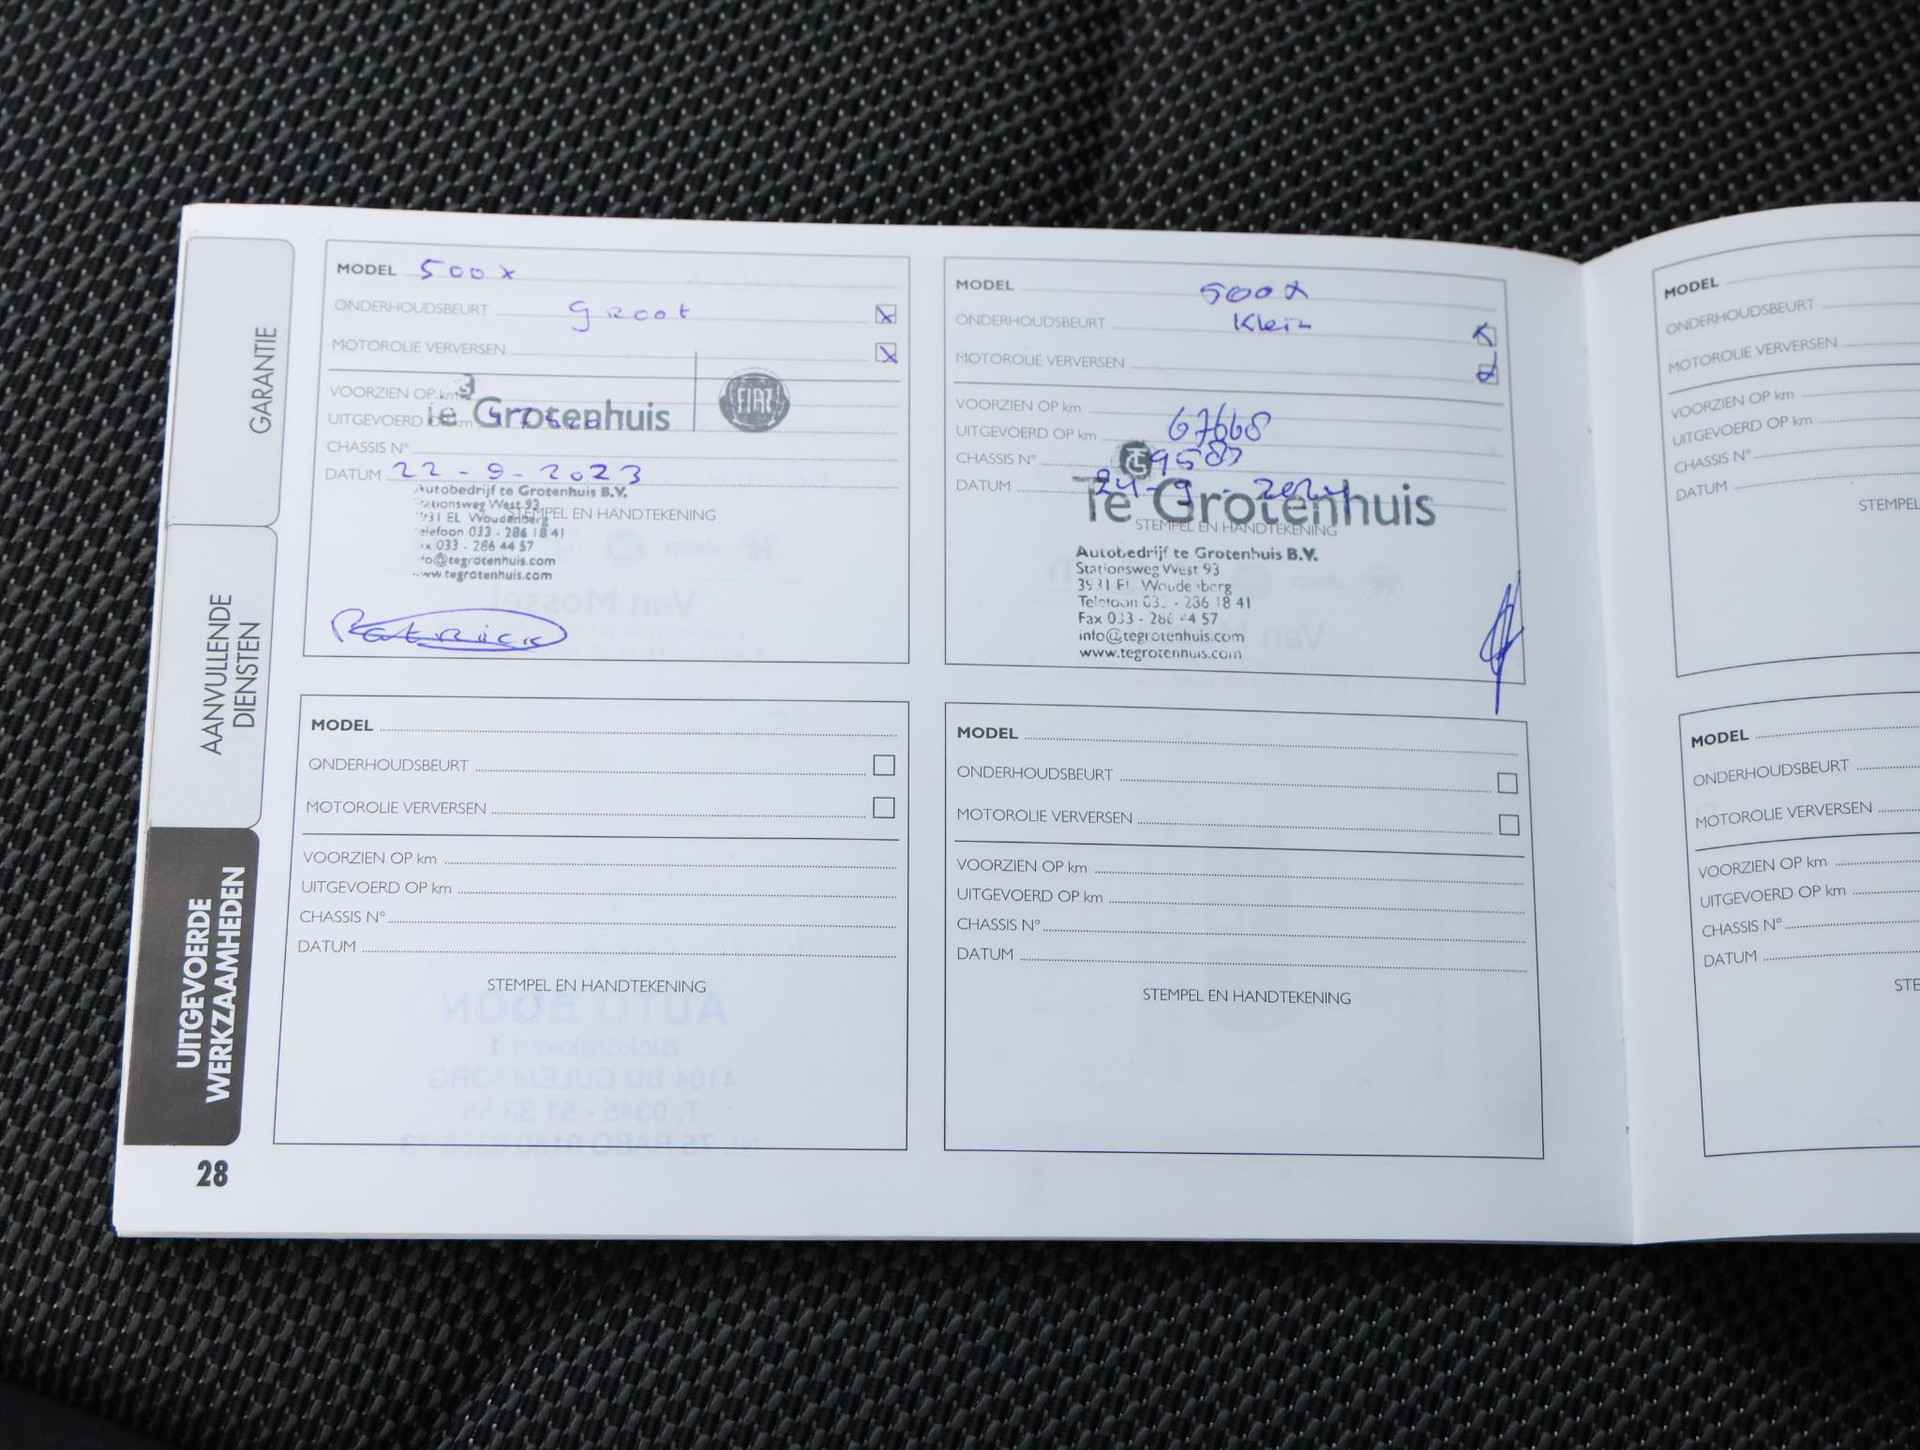 GARANTIE
AANVULLENDE
DIENSTEN
UITGEVOERDE
WERKZAAMHEDEN
28
MODEL 500x
ONDERHOUDSBEURT groot
MOTOROLIE VERVERSEN
VOORZIEN OP km
Te Grotenhuis
FIAT
UITGEVOERD OP km
CHASSIS N°
DATUM 22-9-2023
Autobedrijf te Grotenhuis B.V.
Stationsweg West 93
STEMPEL EN HANDTEKENING
3931 EL Woudenberg
Telefoon 033 - 286 18 41
Fax 033 - 286 44 57
info@tegrotenhuis.com
www.tegrotenhuis.com
Patrick
MODEL 500x
ONDERHOUDSBEURT Klein
MOTOROLIE VERVERSEN
VOORZIEN OP km
UITGEVOERD OP km 67668
CHASSIS N°
DATUM 24-9-2024
Te Grotenhuis
STEMPEL EN HANDTEKENING
Autobedrijf te Grotenhuis B.V.
Stationsweg West 93
3931 EL Woudenberg
Telefoon 033 - 286 18 41
Fax 033 - 286 44 57
info@tegrotenhuis.com
www.tegrotenhuis.com
MODEL
ONDERHOUDSBEURT
MOTOROLIE VERVERSEN
VOORZIEN OP km
UITGEVOERD OP km
CHASSIS N°
DATUM
STEMPEL EN HANDTEKENING
MODEL
ONDERHOUDSBEURT
MOTOROLIE VERVERSEN
VOORZIEN OP km
UITGEVOERD OP km
CHASSIS N°
DATUM
STEMPEL EN HANDTEKENING
MODEL
ONDERHOUDSBEURT
MOTOROLIE VERVERSEN
VOORZIEN OP km
UITGEVOERD OP km
CHASSIS N°
DATUM
STEMPEL
MODEL
ONDERHOUDSBEURT
MOTOROLIE VERVERSEN
VOORZIEN OP km
UITGEVOERD OP km
CHASSIS N°
DATUM
STE